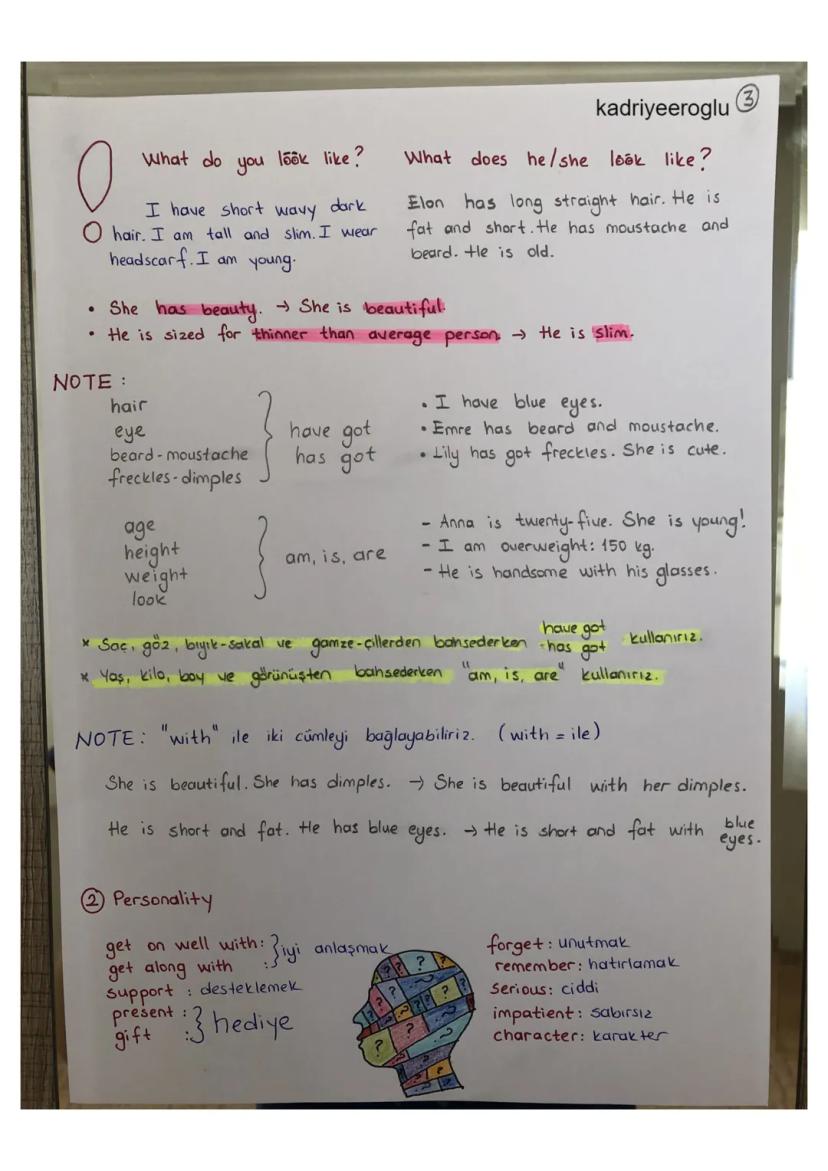 kadriyeeroglu 3
What do you look like?
I have short wavy dark
hair. I am tall and slim. I wear
headscarf. I am young.
What does he/she look like?
Elon has long straight hair. He is
fat and short. He has moustache and
beard. He is old.
• She has beauty. → She is beautiful.
• He is sized for thinner than average person → He is slim.
NOTE :
hair
eye
beard-moustache
freckles-dimples
have got
has got
• I have blue eyes.
• Emre has beard and moustache.
• Lily has got freckles. She is cute.
age
height
weight
look
am, is, are
- Anna is twenty-five. She is young!
- I am overweight: 150 kg.
- He is handsome with his glasses.
* Saç, göz, bıyık-sakal ve gamze-çillerden bahsederken have got has got kullanırız.
* Yaş, kilo, boy ve görünüşten bahsederken "am, is, are" kullanırız.
NOTE: "with" ile iki cümleyi bağlayabiliriz. (with = ile)
She is beautiful. She has dimples. → She is beautiful with her dimples.
He is short and fat. He has blue eyes. → He is short and fat with blue eyes.
2 Personality
get on well with:
get along with :
iyi anlaşmak
support : desteklemek
present :
gift :
hediye
forget: unutmak
remember: hatırlamak
serious: ciddi
impatient: sabırsız
character: karakter